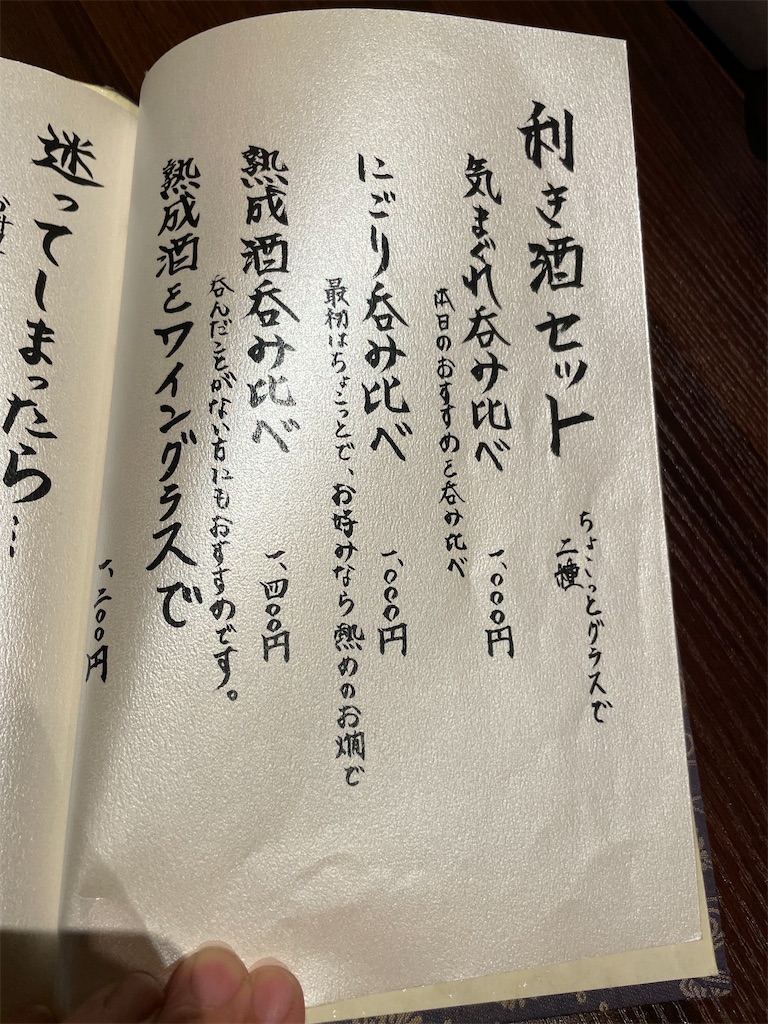 利き酒セット
ちょこっとグラスで
二種
気まぐれ呑み比べ
一、〇〇〇円
本日のおすすめを呑み比べ
にごり呑み比べ
一、〇〇〇円
最初はちょこっとで、お好みなら熱めのお燗で
熟成酒呑み比べ
一、四〇〇円
呑んだことがない方にもおすすめです。
熟成酒をワイングラスで
一、二〇〇円
迷ってしまったら…